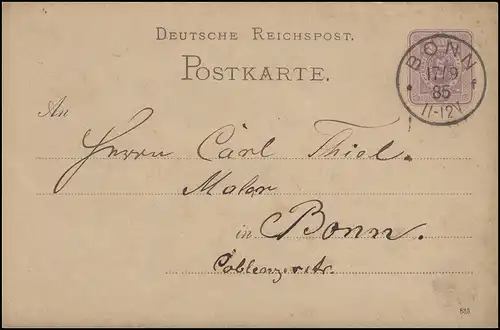 DEUTSCHE REICHSPOST.
POSTKARTE.
BONN
17/9
85
* f
11-12V
An
Herrn Carl Thiel.
Maler
in Bonn.
Coblenzerstr.
885